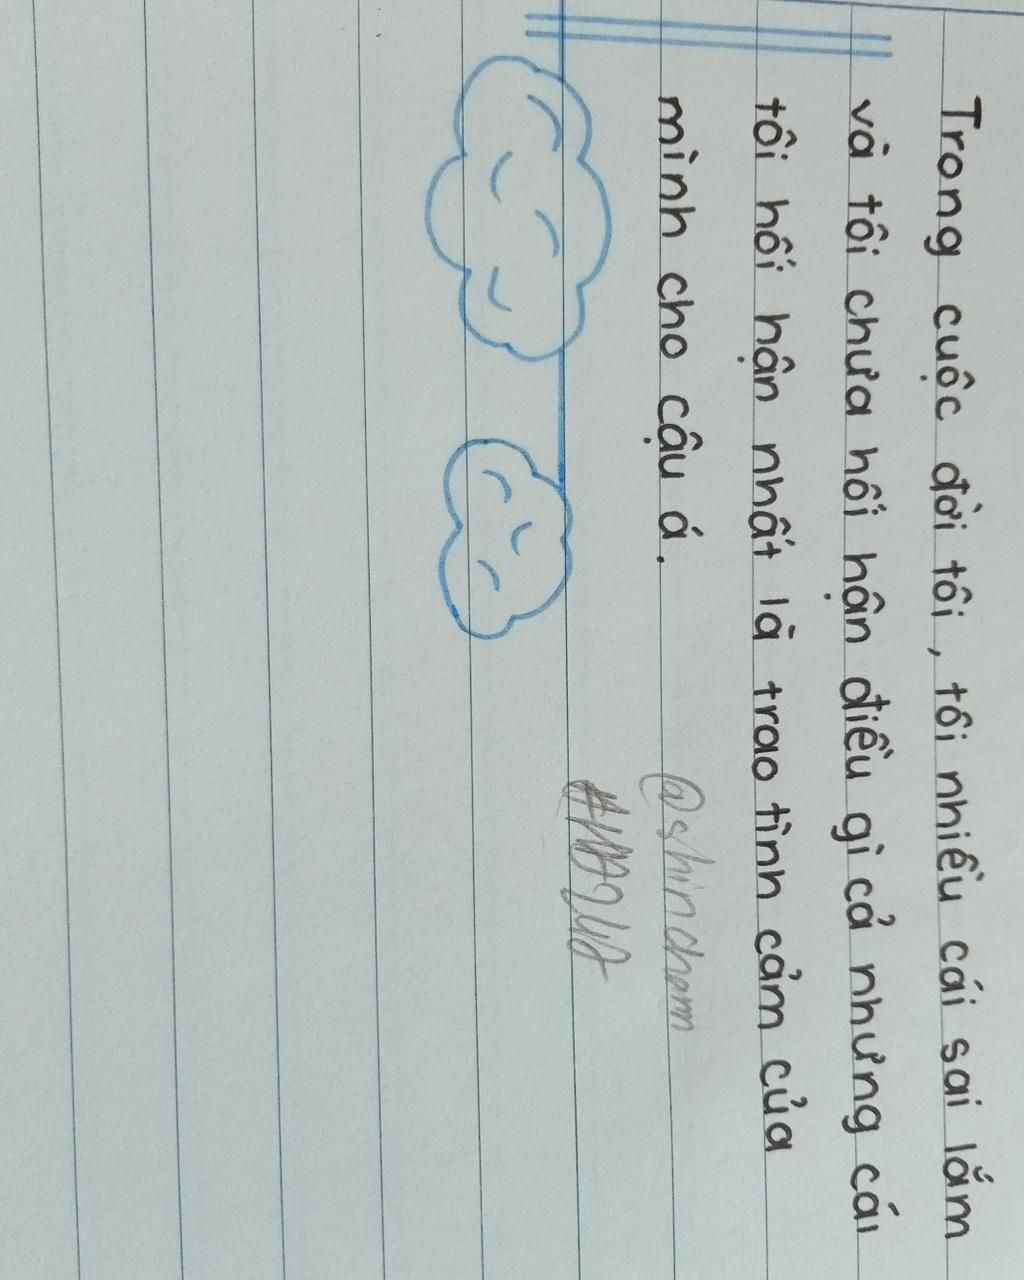 Trong cuộc đời tôi, tôi nhiều cái sai lắm
và tôi chưa hối hận điều gì cả nhưng cái
tôi hối hận nhất là trao tình cảm của
mình cho cậu á.
@shinchann